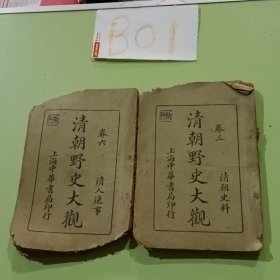 B01
卷六
清人逸事
清朝野史大觀
上海中華書局印行
卷三
清朝史料
清朝野史大觀
上海中華書局印行